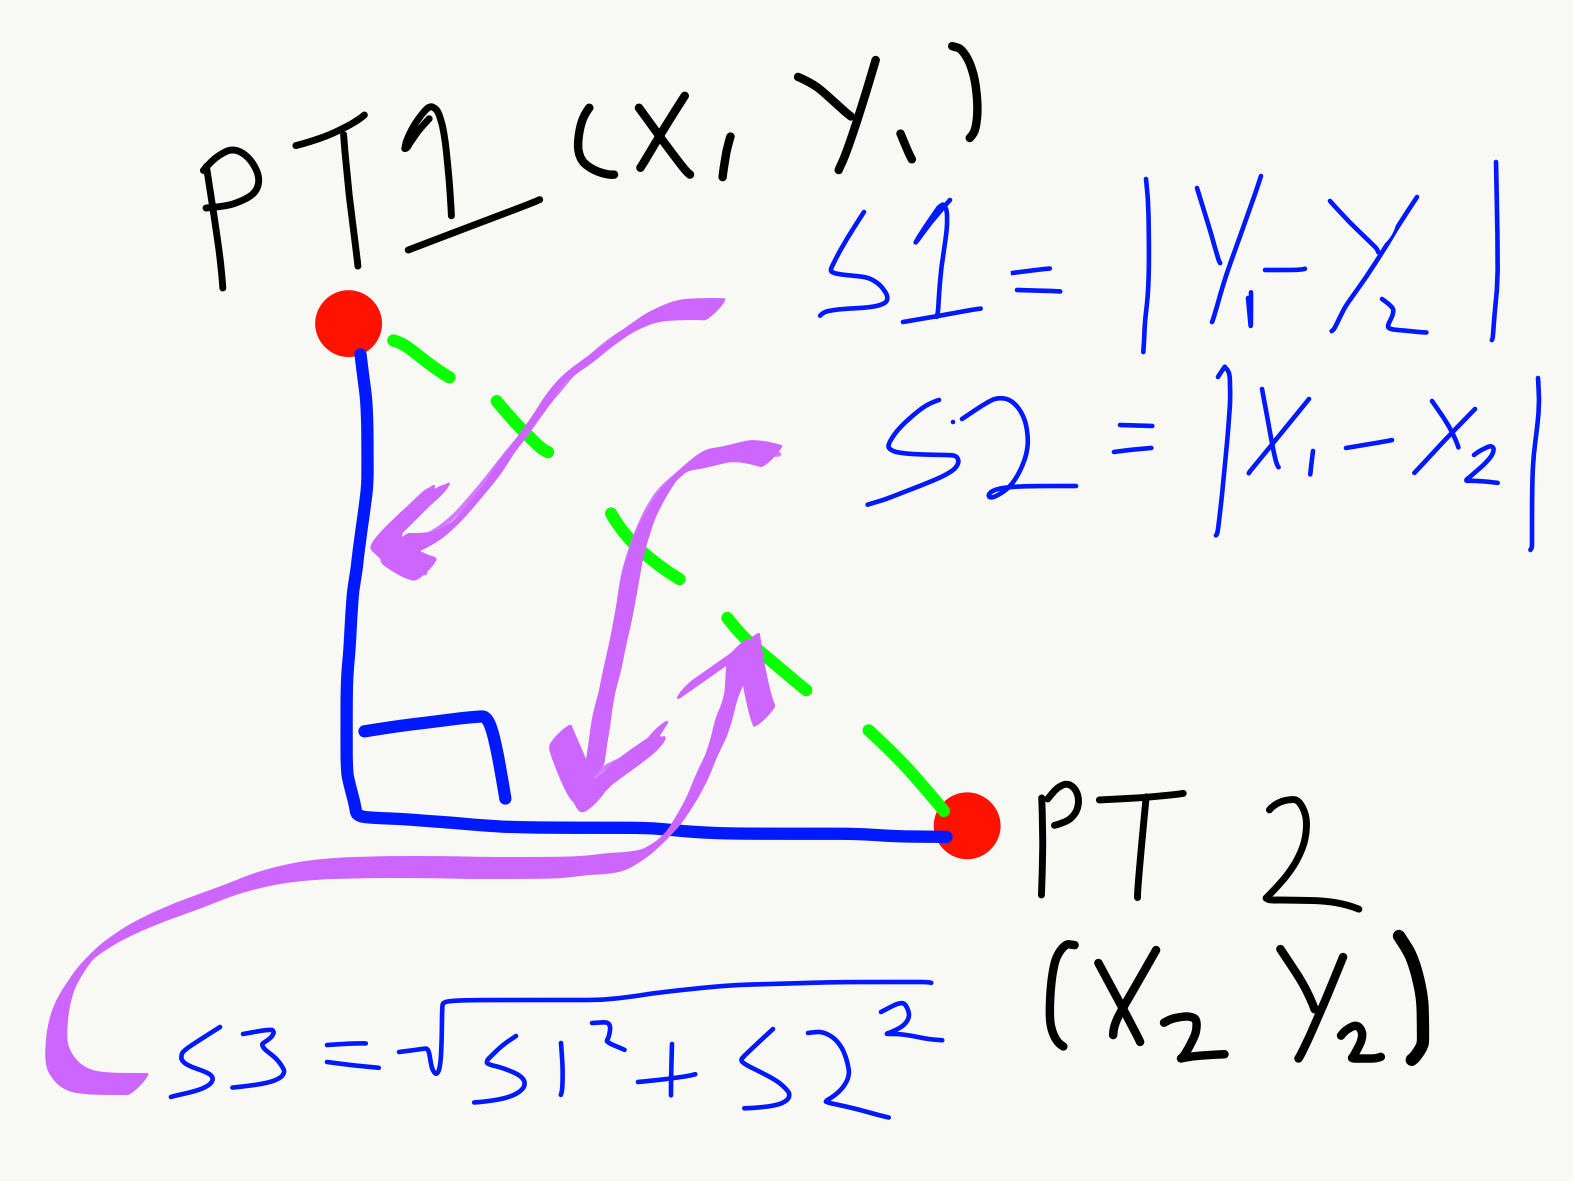 PT1 (X₁ Y₁)
S1 = |Y₁ - Y₂|
S2 = |X₁ - X₂|
PT 2
(X₂ Y₂)
S3 = √S1² + S2²